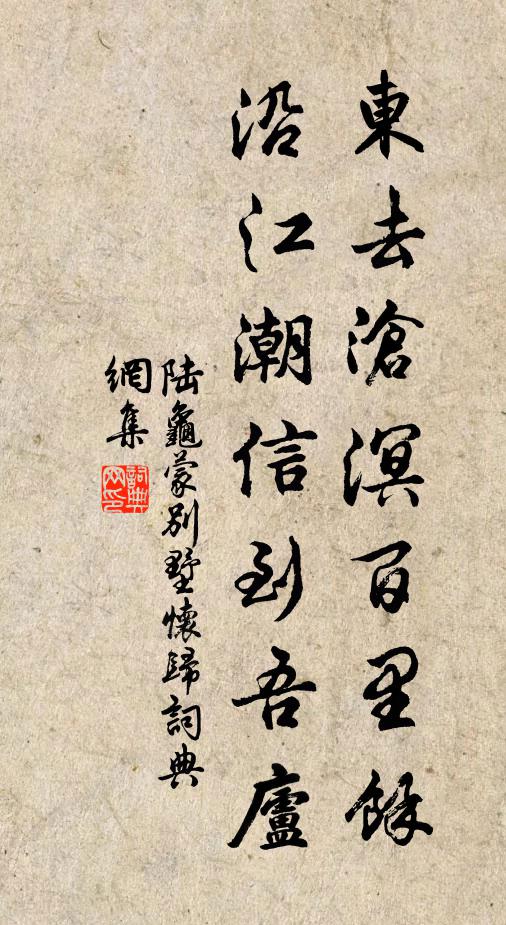 東去滄溟百里餘
沿江潮信到吾廬
陆龜蒙别墅懷歸詞典
網集
詞典
网印